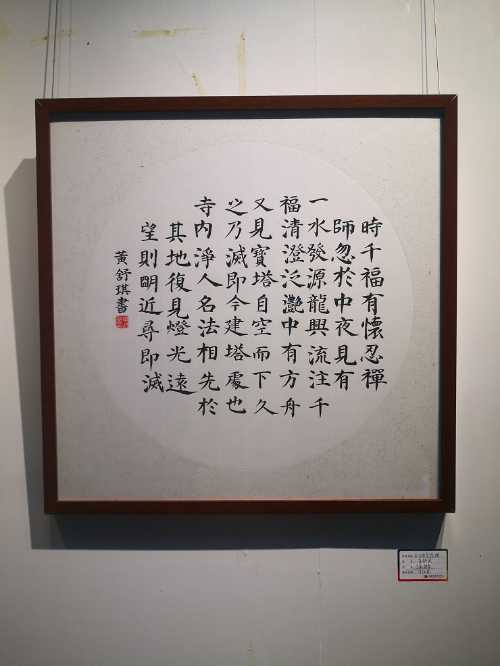 時千福有懷忍禪
師忽於中夜見有
一水發源龍興流注千
福清澄泛灎中有方舟
又見寶塔自空而下久
之乃滅即今建塔處也
寺內淨人名法相先於
其地復見燈光遠
望則明近尋即滅
黃舒琪書